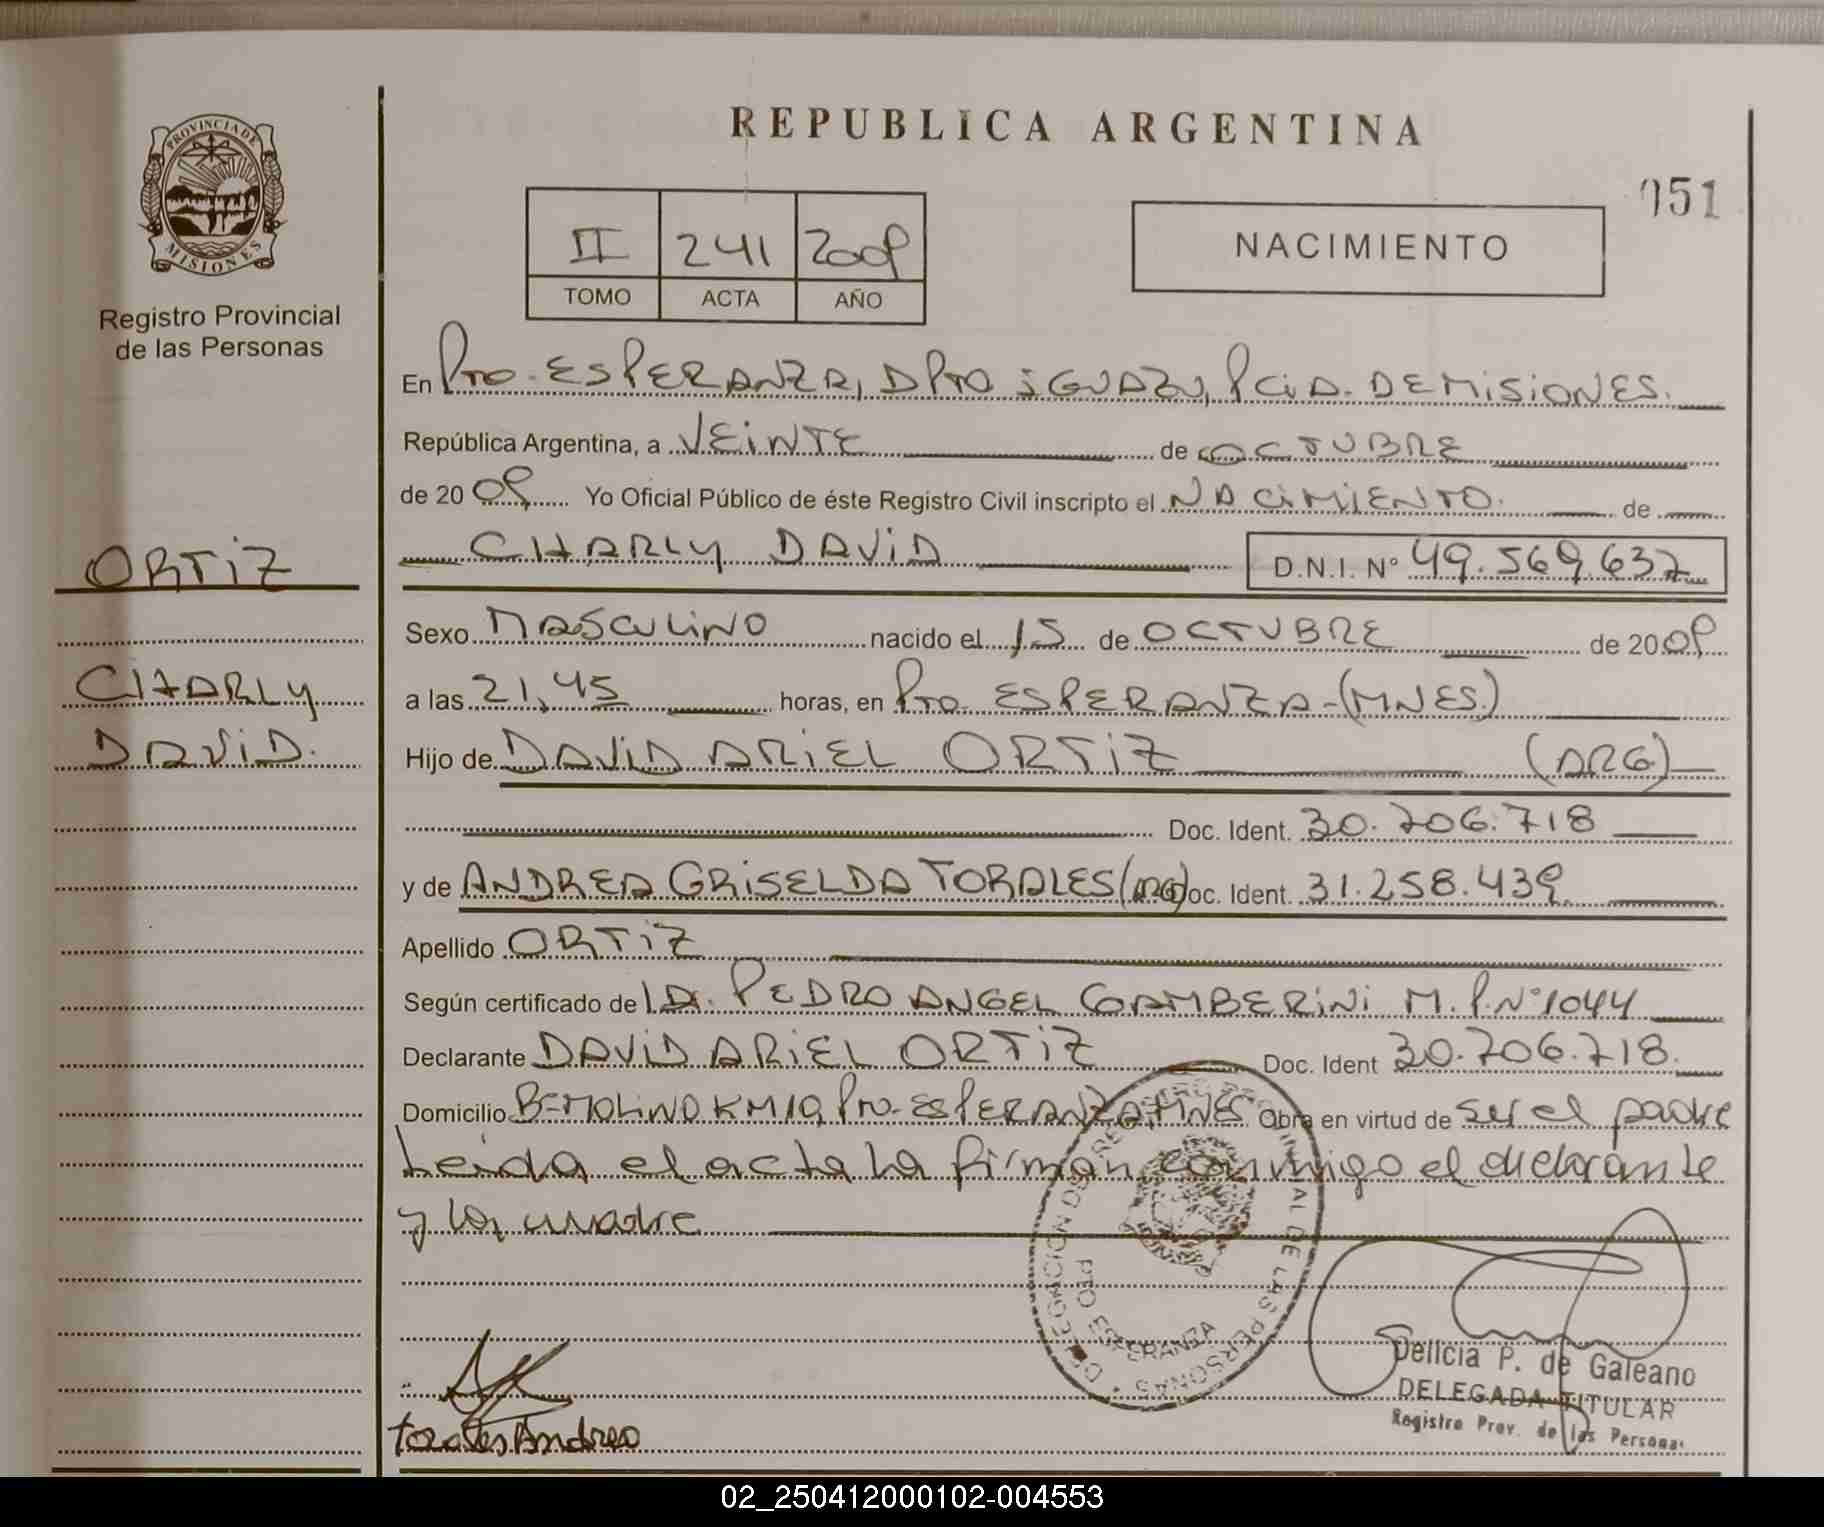 PROVINCIA DE
MISIONES
Registro Provincial
de las Personas
REPUBLICA ARGENTINA
051
II 241 2009
TOMO ACTA AÑO
NACIMIENTO
En Pto. ESPERANZA, DPTO iGUAZU, PciA. DE MiSiONES.
República Argentina, a VEiNTE de OCTUBRE
de 20 09 Yo Oficial Público de éste Registro Civil inscripto el NACiMiENTO. de
CHARLY DAViD D.N.I. N° 49.569.637
ORTiZ
CHARLY
DAViD.
Sexo MASCULiNO nacido el 15 de OCTUBRE de 20 09
a las 21,45 horas, en Pto. ESPERANZA-(MNES.)
Hijo de DAViD ARiEL ORTiZ (ARG)
Doc. Ident. 30.706.718
y de ANDREA GRiSELDA TORALES (ARG) Doc. Ident. 31.258.439
Apellido ORTiZ
Según certificado de Dr. PEDRO ANGEL GAMBERiNi M.P.N°1044
Declarante DAViD ARiEL ORTiZ Doc. Ident 30.706.718.
Domicilio B-MOLiNO KM10, Pto-ESPERANZA, MNES Obra en virtud de ser el padre
Leida el acta la firman conmigo el declarante
y la madre
DELEGACION DE REGISTRO PROVINCIAL DE LAS PERSONAS
PTO ESPERANZA
Delicia P. de Galeano
DELEGADA TITULAR
Registro Prov. de las Personas
Torales Andrea
02_250412000102-004553